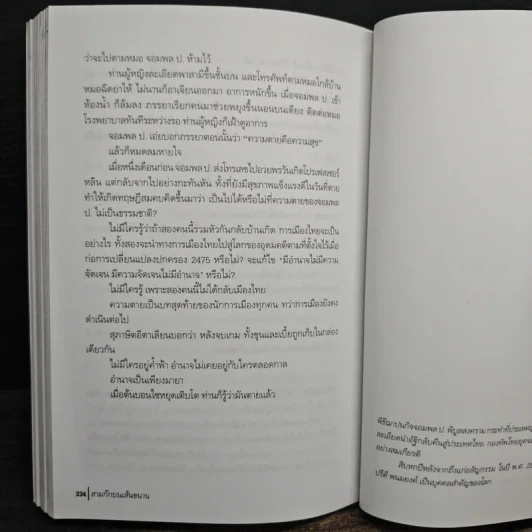 ว่าจะไปตามหมอ จอมพล ป. ห้ามไว้
ท่านผู้หญิงละเอียดพาสามีขึ้นชั้นบน และโทรศัพท์ตามหมอใกล้บ้าน
หมอฉีดยาให้ ไม่นานก็อาเจียนออกมา อาการหนักขึ้น เมื่อจอมพล ป. เข้า
ห้องน้ำ ก็ล้มลง ภรรยาเรียกคนมาช่วยพยุงขึ้นนอนบนเตียง ติดต่อหมอ
โรงพยาบาลทันทีระหว่างรอ ท่านผู้หญิงก็เฝ้าดูอาการ
จอมพล ป. เอ่ยบอกภรรยาตอนนั้นว่า “ความตายคือความสุข”
แล้วก็หมดลมหายใจ
เมื่อหนึ่งเดือนก่อน จอมพล ป. ส่งโทรเลขไปอวยพรวันเกิดโปรเฟสเซอร์
หลิน แต่กลับจากไปอย่างกะทันหัน ทั้งที่ยังมีสุขภาพแข็งแรงดีในวันที่ตาย
ทำให้เกิดทฤษฎีสมคบคิดขึ้นมาว่า เป็นไปได้หรือไม่ที่ความตายของจอมพล
ป. ไม่เป็นธรรมชาติ?
ไม่มีใครรู้ว่าถ้าสองคนนี้รวมหัวกันกลับบ้านเกิด การเมืองไทยจะเป็น
อย่างไร ทั้งสองจะนำทางการเมืองไทยไปสู่โลกของอุดมคติตามที่ตั้งใจไว้เมื่อ
ก่อการเปลี่ยนแปลงปกครอง 2475 หรือไม่? จะแก้ไข ‘มีอำนาจไม่มีความ
จัดเจน มีความจัดเจนไม่มีอำนาจ’ หรือไม่?
ไม่มีใครรู้ เพราะสองคนนี้ไม่ได้กลับเมืองไทย
ความตายเป็นบทสุดท้ายของนักการเมืองทุกคน ทว่าการเมืองยังคง
ดำเนินต่อไป
สุภาษิตอิตาเลียนบอกว่า หลังจบเกม ทั้งขุนและเบี้ยถูกเก็บในกล่อง
เดียวกัน
ไม่มีใครอยู่ค้ำฟ้า อำนาจไม่เคยอยู่กับใครตลอดกาล
อำนาจเป็นเพียงมายา
เมื่อต้นบอนไซหยุดเติบโต ท่านก็รู้ว่ามันตายแล้ว
334 | สามก๊กบนเส้นขนาน
พิธีฌาปนกิจจอมพล ป. พิบูลสงคราม กระทำที่ประเทศญี่
ละเอียดนำอัฐิกลับคืนสู่ประเทศไทย กองทัพไทย
อย่างสมเกียรติ
สิบหกปีหลังจากถึงแก่อสัญกรรม ในปี พ.ศ.
ปรีดี พนมยงค์ เป็นบุคคลสำคัญของโลก